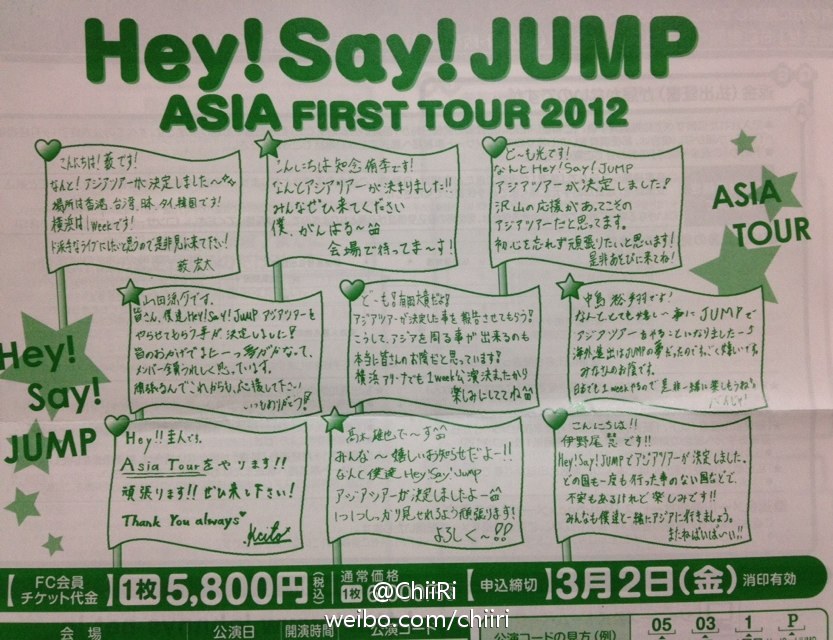 Hey! Say! JUMP
ASIA FIRST TOUR 2012
こんにちは!薮です!
なんと!アジアツアーが決定しました〜
場所は香港、台湾、日本、タイ、韓国です!
横浜は1Weekです!
薮 宏太
こんにちは 知念侑李です!
なんとアジアツアーが決まりました!!
みんなぜひ来てください
僕、がんばる〜
会場で待ってま〜す!
ど〜も光です!
なんとHey! Say! JUMP
アジアツアーが決定しました!
沢山の応援があってこその
アジアツアーだと思ってます。
初心を忘れず頑張りたいと思います!
是非あそびに来てね!
ASIA
TOUR
山田涼介です。
皆さん、僕達Hey! Say! JUMP アジアツアーを
やらせてもらう事が決定しました!
皆のおかげでまた一つ夢がかなって、
メンバー全員うれしく思っています。
頑張るんでこれからも、応援して下さい
いつもありがとう!
ど〜も!有岡大貴だよ!
アジアツアーが決定した事を報告させてもらう!
こうして、アジアを周る事が出来るのも
本当に皆さんのお陰だと思っています!
横浜アリーナでも1week公演決まったから
楽しみにしててね
中島裕翔です!
なんと、とても嬉しい事にJUMPで
アジアツアーをやることになりました
みんなのお陰です。
Hey!
Say!
JUMP
Hey!! 圭人です。
Asia Tourをやります!!
頑張ります!! ぜひ来て下さい!
Thank You always♥
Keito
髙木雄也で〜す
みんな〜嬉しいお知らせだよー!!
なんと僕達Hey! Say! Jump
アジアツアーが決定しましたよー
いつしっかり見せれるよう頑張ります!
よろしく〜!!
こんにちは!!
伊野尾慧です!!
Hey! Say! JUMPでアジアツアーが決定しました。
どの国も一度も行った事のない国などで、
不安もあるけれど楽しみです!!
みんなも僕達と一緒にアジアに行きましょう。
またねばいば〜い!!
FC会員
チケット代金
1枚5,800円(税込)
通常価格
1枚
申込締切
3月2日(金)消印有効
@ChiiRi
weibo.com/chiiri
会場
公演日
開演時間
公演コード
公演コードの見方(例)
05 03 1 P